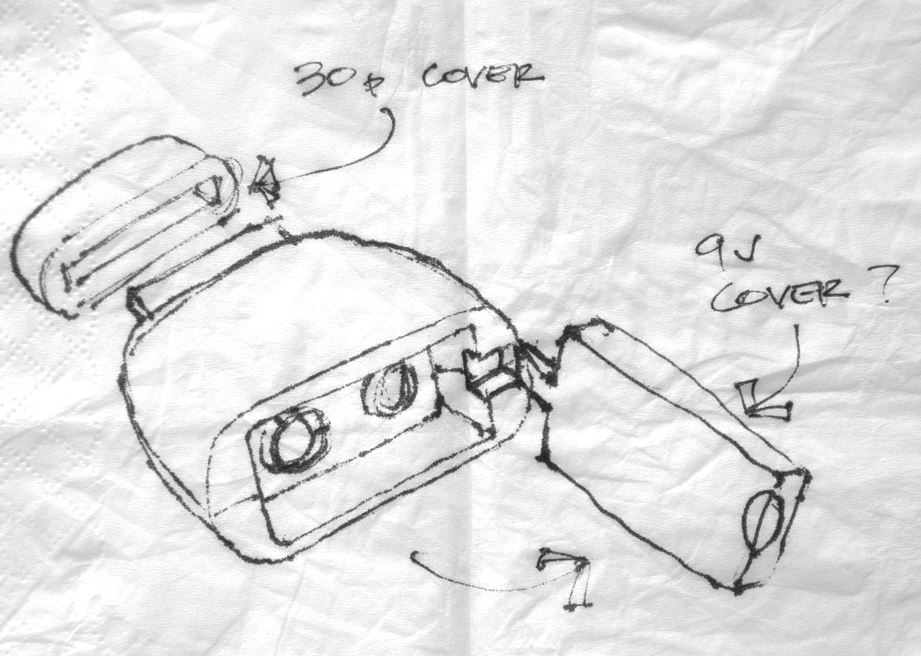 30p COVER
9V
COVER?